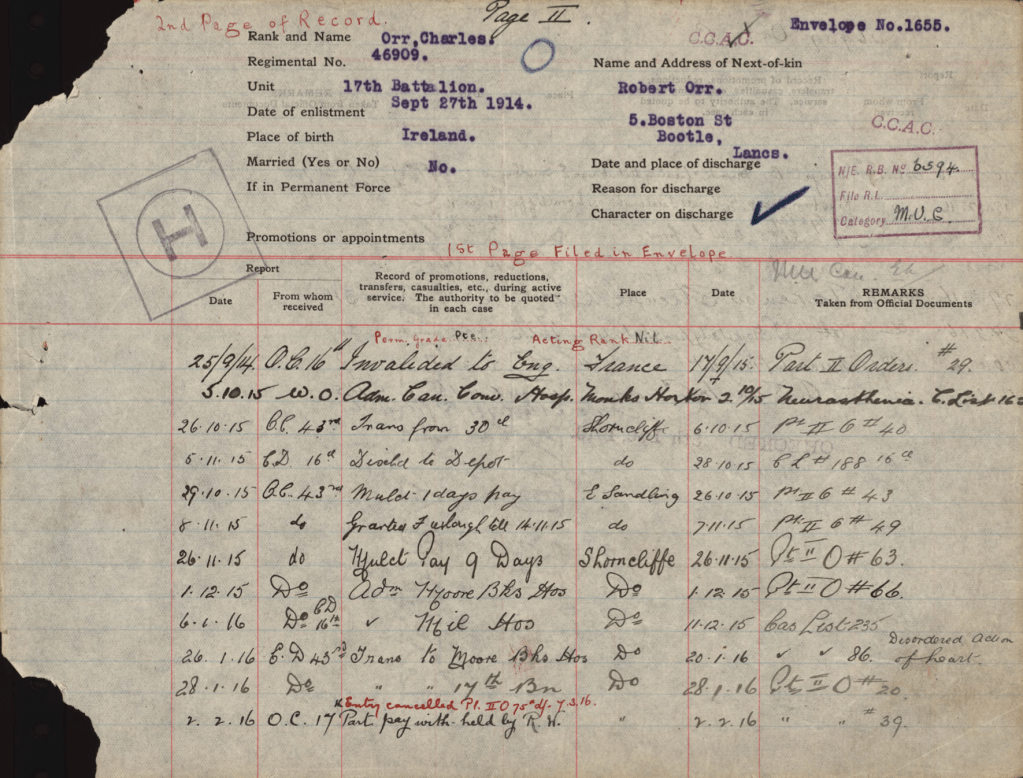 2nd Page of Record.
Page II.
Envelope No.1655.
Rank and Name Orr, Charles.
C.C.A.C.
Regimental No. 46909.
Name and Address of Next-of-kin
Unit 17th Battalion.
Robert Orr.
Date of enlistment Sept 27th 1914.
5.Boston St
C.C.A.C.
Place of birth Ireland.
Bootle,
Lancs.
Married (Yes or No) No.
Date and place of discharge
N/E. R.B. No 6594.
If in Permanent Force
Reason for discharge
File R.L.
H
Character on discharge
Category M.U.C.
Promotions or appointments
1st Page Filed in Envelope
Report
Date
From whom received
Record of promotions, reductions, transfers, casualties, etc., during active service. The authority to be quoted in each case
Place
Date
REMARKS
Taken from Official Documents
Perm. Grade Pte.: Acting Rank Nil
25/9/14. O.C. 16th Invalided to Eng. France 17/9/15. Part II Orders. #29.
5.10.15 W.O. Adm. Can. Conv. Hosp. Monks Horton 2 10/15 Neurasthenia. C. List
26.10.15 O.C. 43rd Trans from 30th Shorncliffe 6.10.15 Pt II O # 40
5.11.15 C.D. 16th Dischd to Depot do 28.10.15 C L # 188 16th
29.10.15 O.C. 43rd Mulct 1 days pay E Sandling 26.10.15 Pt II O # 43
8.11.15 do Granted Furlough till 14.11.15 do 7.11.15 Pt. II O # 49
26.11.15 do Mulct Pay 9 Days Shorncliffe 26.11.15 Pt II O # 63.
1.12.15 Do Adm Moore Bks Hos Do 1.12.15 Pt II O # 66.
6.1.16 Do C D 16th ✓ Mil Hos Do 11.12.15 Cas List 235
26.1.16 C.D 43rd Trans to Moore Bks Hos Do 20.1.16 ✓ ✓ 86. Disordered Action of heart.
28.1.16 Do " " 17th Bn Do 28.1.16 Pt II O # 20.
* Entry cancelled Pt. II O 75 d/- 7.3.16.
2.2.16 O.C. 17 Part pay with-held by R.W. " 2.2.16 " " # 39.